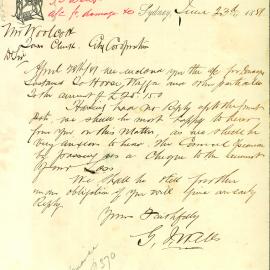 Sydney, June 23rd 1881
Mr Woolcott
Town Clerk. City Corporation
D Sir
April 28th/81 we enclosed you the a/c for damage
Sustained to Horse, Waggon and other particulars
to the amount of £25.1.0
Having had no Reply up to the present
date, we shall be most happy to hear
from you on this Matter, as we should be
very anxious to hear the Council
by passing us a Cheque to the amount
of our Loss
We shall be still further
under obligation if you will give an early
Reply.
Yours Faithfully
G. J. Wells